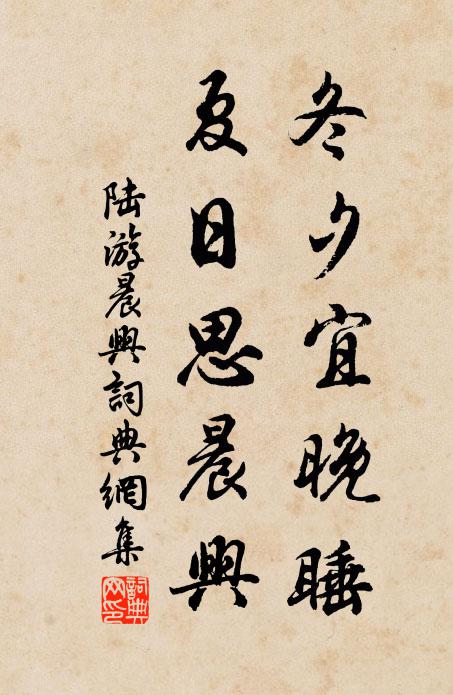 冬夕宜晚睡
夏日思晨興
陆游晨興詞典網集
詞典網印